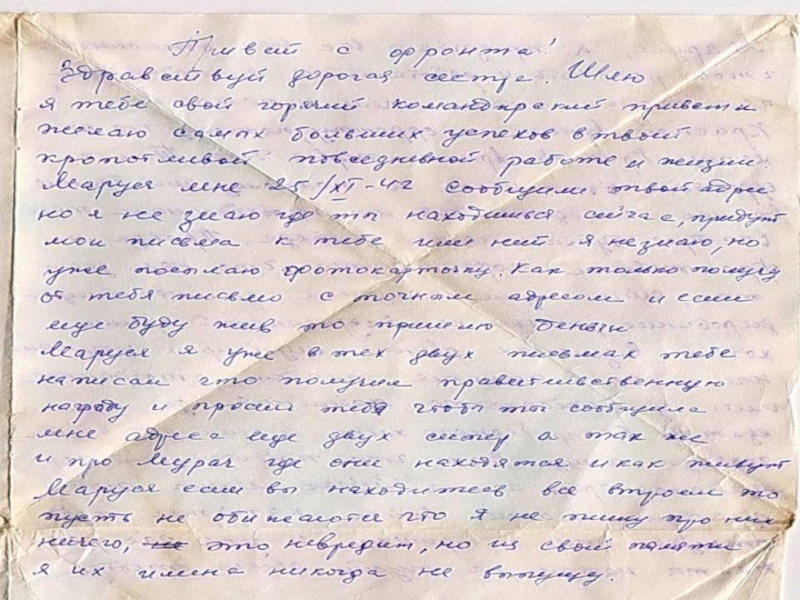 Привет с фронта!
Здравствуй дорогая сестра. Шлю
я тебе свой горячий командирский привет и
желаю самых больших успехов в твоей
кропотливой повседневной работе и жизни.
Маруся мне 25/XI-42 сообщили твой адрес
но я не знаю где ты находишься сейчас, придут
мои письма к тебе или ней я незнаю, но
уже посылаю фотокарточку. Как только получу
от тебя письмо с точным адресом и если
еще буду жив то пришлю деньги
Маруся я уже в тех двух письмах тебе
написал что получил правительственную
награду и просил тебя чтобы ты сообщила
мне адреса еще двух сестер а так же
и про где они находятся и как живут
Маруся если вы находитесь все втроем то
пусть не обижаются что я не пишу про них
ничего, не это невредит, но из своей памяти
я их имена никогда не выпущу.